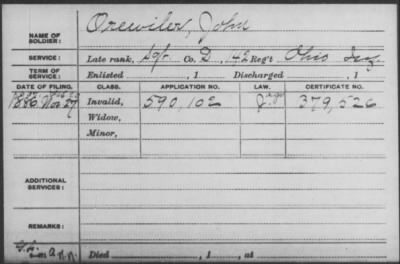 NAME OF SOLDIER: Orewiler, John
SERVICE: Late rank, Sgt Co. D, 42 Reg't Ohio Inf.
TERM OF SERVICE: Enlisted , 1 Discharged , 1
DATE OF FILING. CLASS. APPLICATION NO. LAW. CERTIFICATE NO.
1886 Nov 27 Invalid, 590,102 379,526
Widow,
Minor,
ADDITIONAL SERVICES:
REMARKS:
Died , 1 , at